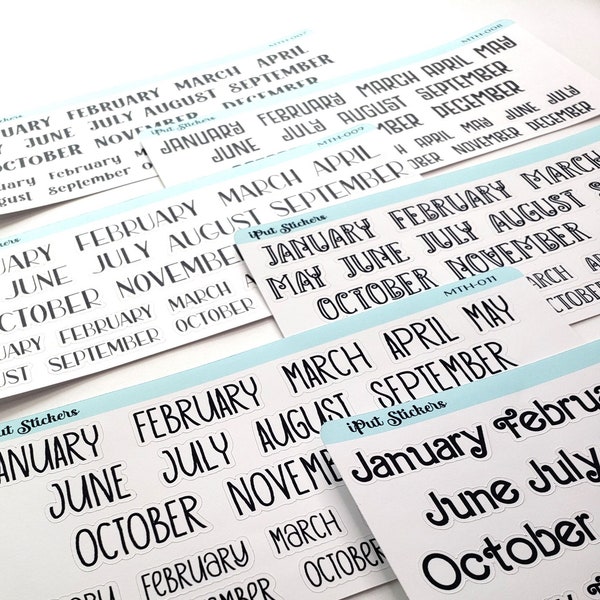 MTH-007
iPut Stickers
FEBRUARY MARCH APRIL
JUNE JULY AUGUST SEPTEMBER
OCTOBER NOVEMBER DECEMBER
February
September
MTH-008
iPut Stickers
JANUARY FEBRUARY MARCH APRIL MAY
JUNE JULY AUGUST SEPTEMBER
OCTOBER NOVEMBER DECEMBER
APRIL MAY JUNE JULY
NOVEMBER DECEMBER
MTH-009
Stickers
FEBRUARY MARCH APRIL
JUNE JULY AUGUST SEPTEMBER
OCTOBER NOVEMBER
FEBRUARY MARCH
SEPTEMBER OCTOBER
iPut Stickers
JANUARY FEBRUARY MARCH
MAY JUNE JULY AUGUST
OCTOBER NOVEMBER
MARCH
OCTOBER
MTH-011
iPut Stickers
JANUARY FEBRUARY MARCH APRIL MAY
JUNE JULY AUGUST SEPTEMBER
OCTOBER
FEBRUARY MARCH
OCTOBER
iPut Stickers
January February
June July
October